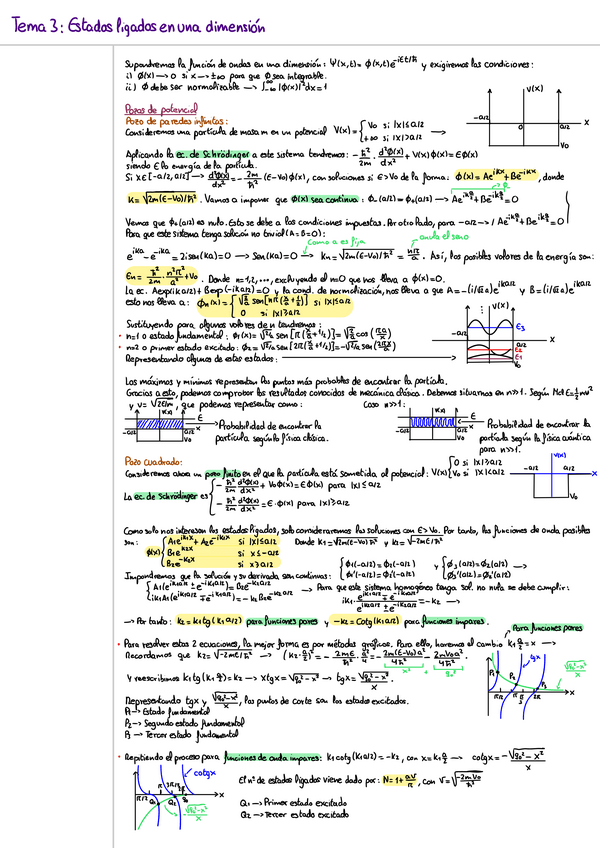 Tema 3: Estados ligados en una dimensión
Supondremos la función de ondas en una dimensión: Ψ(x,t) = ϕ(x,t)e^{-iEt/ħ} y exigiremos las condiciones:
i) ϕ(x) → 0 si x → ±∞ para que ϕ sea integrable.
ii) ϕ debe ser normalizable → ∫_{-∞}^{∞} |ϕ(x)|² dx = 1
Pozos de potencial
Pozo de paredes infinitas:
Consideremos una partícula de masa m en un potencial V(x) = { V₀ si |x| ≤ a/2
+∞ si |x| > a/2 →
V(x)
-a/2 0 a/2 x
V₀
Aplicando la ec. de Schrödinger a este sistema tendremos: -ħ²/2m · d²ϕ(x)/dx² + V(x)ϕ(x) = Eϕ(x)
siendo E la energía de la partícula.
Si x ∈ [-a/2, a/2] → d²ϕ(x)/dx² = -2m/ħ² (E-V₀)ϕ(x), con soluciones si E > V₀ de la forma: ϕ(x) = Ae^{ikx} + Be^{-ikx}, donde
k = √(2m(E-V₀)/ħ²). Vamos a imponer que ϕ(x) sea continua: ϕ₋(a/2) = ϕ₊(a/2) → Ae^{ika/2} + Be^{-ika/2} = 0
Vemos que ϕ₊(a/2) es nulo. Esto se debe a las condiciones impuestas. Por otro lado, para -a/2 → Ae^{-ika/2} + Be^{ika/2} = 0
Para que este sistema tenga solución no trivial (A=B=0):
Como a es fija
anula el seno
e^{ika} - e^{-ika} = 2i sen(ka) = 0 → sen(ka) = 0 → kn = √(2m(E-V₀)/ħ²) = nπ/a. Así, los posibles valores de la energía son:
En = ħ²/2m · n²π²/a² + V₀. Donde n=1,2,..., excluyendo el n=0 que nos lleva a ϕ(x)=0.
La ec. Aexp(ika/2) + Bexp(-ika/2) = 0 y la cond. de normalización, nos lleva a que A = -(i/√2a)e^{ika/2} y B = (i/√2a)e^{ika/2}
esto nos lleva a: ϕn(x) = { √(2/a) sen[nπ(x/a + 1/2)] si |x| ≤ a/2
0 si |x| ≥ a/2
Sustituyendo para algunos valores de n tendremos:
• n=1 o estado fundamental: ϕ₁(x) = √(2/a) sen[π(x/a + 1/2)] = √(2/a) cos(πx/a)
• n=2 o primer estado excitado: ϕ₂ = √(2/a) sen[2π(x/a + 1/2)] = -√(2/a) sen(2πx/a)
Representando algunos de estos estados: →
V(x)
E₃
-a/2 a/2 x
E₂
E₁
V₀
Los máximos y mínimos representan los puntos más probables de encontrar la partícula.
Gracias a esto, podemos comprobar los resultados conocidos de mecánica clásica. Debemos situarnos en n>>1. Según McI E=½mv²
y v = √(2E/m), que podemos representar como: Caso n>>1:
V(x) E x -a/2 a/2 V₀
→ Probabilidad de encontrar la
partícula según la física clásica.
V(x) E x -a/2 a/2 V₀
→ Probabilidad de encontrar la
partícula según la física cuántica
para n>>1.
Pozo cuadrado:
Consideremos ahora un pozo finito en el que la partícula está sometida al potencial: V(x) { 0 si |x| ≥ a/2
V₀ si |x| ≤ a/2
V(x)
-a/2 a/2 x
V₀
La ec de Schrödinger es { -ħ²/2m d²ϕ(x)/dx² + V₀ϕ(x) = Eϕ(x) para |x| ≤ a/2
-ħ²/2m d²ϕ(x)/dx² = E·ϕ(x) para |x| ≥ a/2
Como solo nos interesan los estados ligados, solo consideraremos las soluciones con E > V₀. Por tanto, las funciones de onda posibles
son: ϕ(x) { A₁e^{ik₁x} + A₂e^{-ik₁x} si |x| ≤ a/2 Donde k₁ = √(2m(E-V₀)/ħ²) y k₂ = √(-2mE/ħ²)
B₁e^{k₂x} si x ≤ -a/2
B₂e^{-k₂x} si x ≥ a/2
Impondremos que la solución y su derivada son continuas: { ϕ₁(-a/2) = ϕ₂(-a/2) y { ϕ₃(a/2) = ϕ₂(a/2) →
ϕ₁'(-a/2) = ϕ₂'(-a/2) ϕ₃'(a/2) = ϕ₂'(a/2)
→ Para que este sistema homogéneo tenga sol. no nula se debe cumplir:
→ Por tanto: k₂ = k₁tg(k₁a/2) para funciones pares y -k₂ = Cotg(k₁a/2) para funciones impares.
Para funciones pares
• Para resolver estas 2 ecuaciones, la mejor forma es por métodos gráficos. Para ello, haremos el cambio k₁a/2 = x →
Recordamos que k₂ = √(-2mE/ħ²) → (k₂·a/2)² = -2mE/ħ² · a²/4 = -2m(E-V₀)a²/4ħ² - 2mV₀a²/4ħ²
x² + q₀²
Y reescribimos k₁tg(k₁a/2) = k₂ → xtgx = √(q₀²-x²) → tgx = √(q₀²-x²)/x
tgx
√(q₀²-x²)/x
P₁ P₂ P₃
x
Representando tgx y √(q₀²-x²)/x, los puntos de corte son los estado excitados.
P₁ → Estado fundamental
P₂ → Segundo estado fundamental
P₃ → Tercer estado fundamental
• Repitiendo el proceso para funciones de onda impares: k₁cotg(k₁a/2) = -k₂, con x = k₁a/2 → cotgx = -√(q₀²-x²)/x
cotgx
π/2 π 3π/2 q₀ x
Q₁ Q₂
-√(q₀²-x²)/x
El nº de estados ligados viene dado por: N = 1 + aV/π, con V = √(-2mV₀/ħ²)
Q₁ → Primer estado excitado
Q₂ → Tercer estado excitado